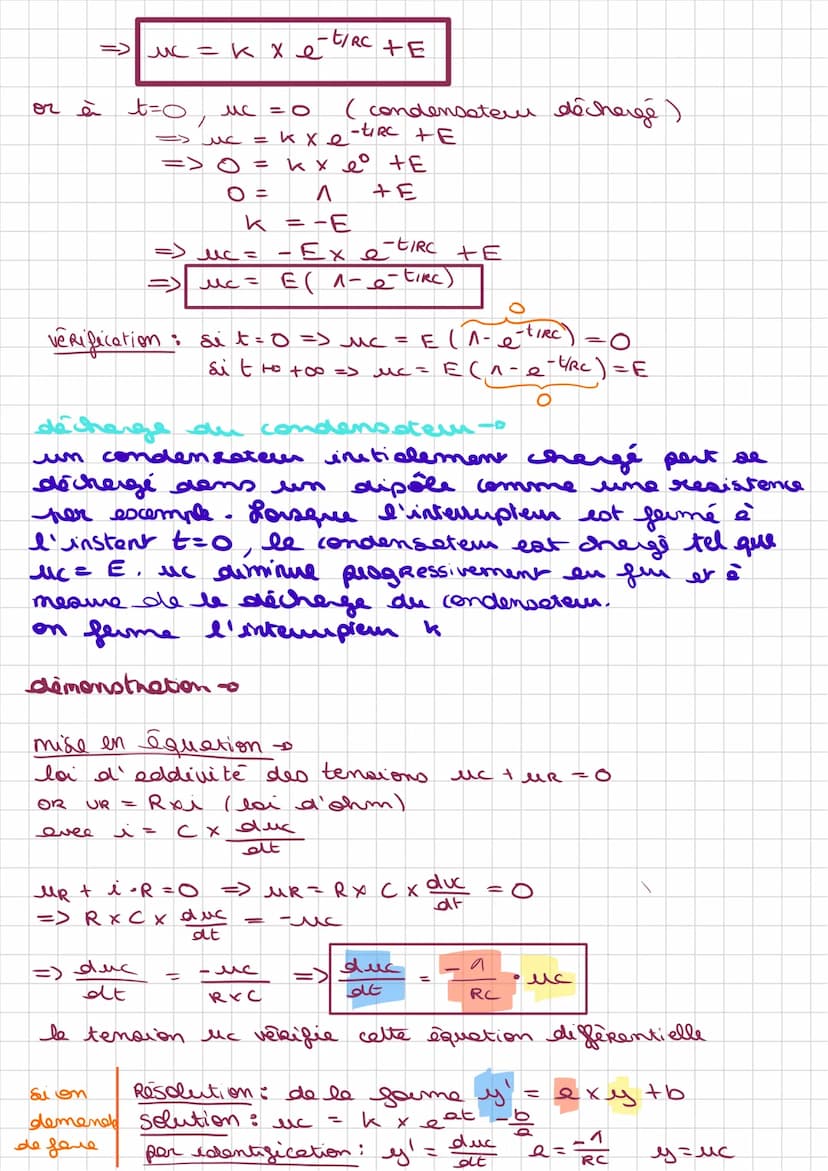 => uc = k x e^-t/RC + E
or à t=0, uc = 0 (condensateur déchargé)
=> uc = k x e^-t/RC + E
=> 0 = k x e^0 + E
0 = 1 + E
k = -E
=> uc = -E x e^-t/RC + E
=> uc = E(1-e^-t/RC)
0
vérification : si t = 0 => uc = E(1-e^-t/RC) = 0
si t → +∞ => uc = E(1-e^-t/RC) = E
0
décharge du condensateur →
un condensateur initialement chargé peut se
déchargé dans un dipôle comme une resistence
par exemple. Lorsque l'interrupteur est fermé à
l'instant t=0, le condensateur est chargé tel que
uc = E. uc diminue progressivement au fur et à
mesure de la décharge du condensateur.
on ferme l'interrupteur k
démonstration →
mise en équation →
loi d'addivité des tensions uc + uR = 0
OR UR = Rxi (loi d'ohm)
avec i = C x duc/dt
uR + i·R = 0 => uR = R x C x duc/dt = 0
=> R x C x duc/dt = -uc
=> duc/dt = -uc/RxC => duc/dt = -1/RC · uc
la tension uc vérifie cette équation différentielle
si on
demande
de faire
Résolution : de la forme y' = a x y + b
solution : uc = k x e^at - b/a
par identification : y' = duc/dt a = -1/RC y = uc